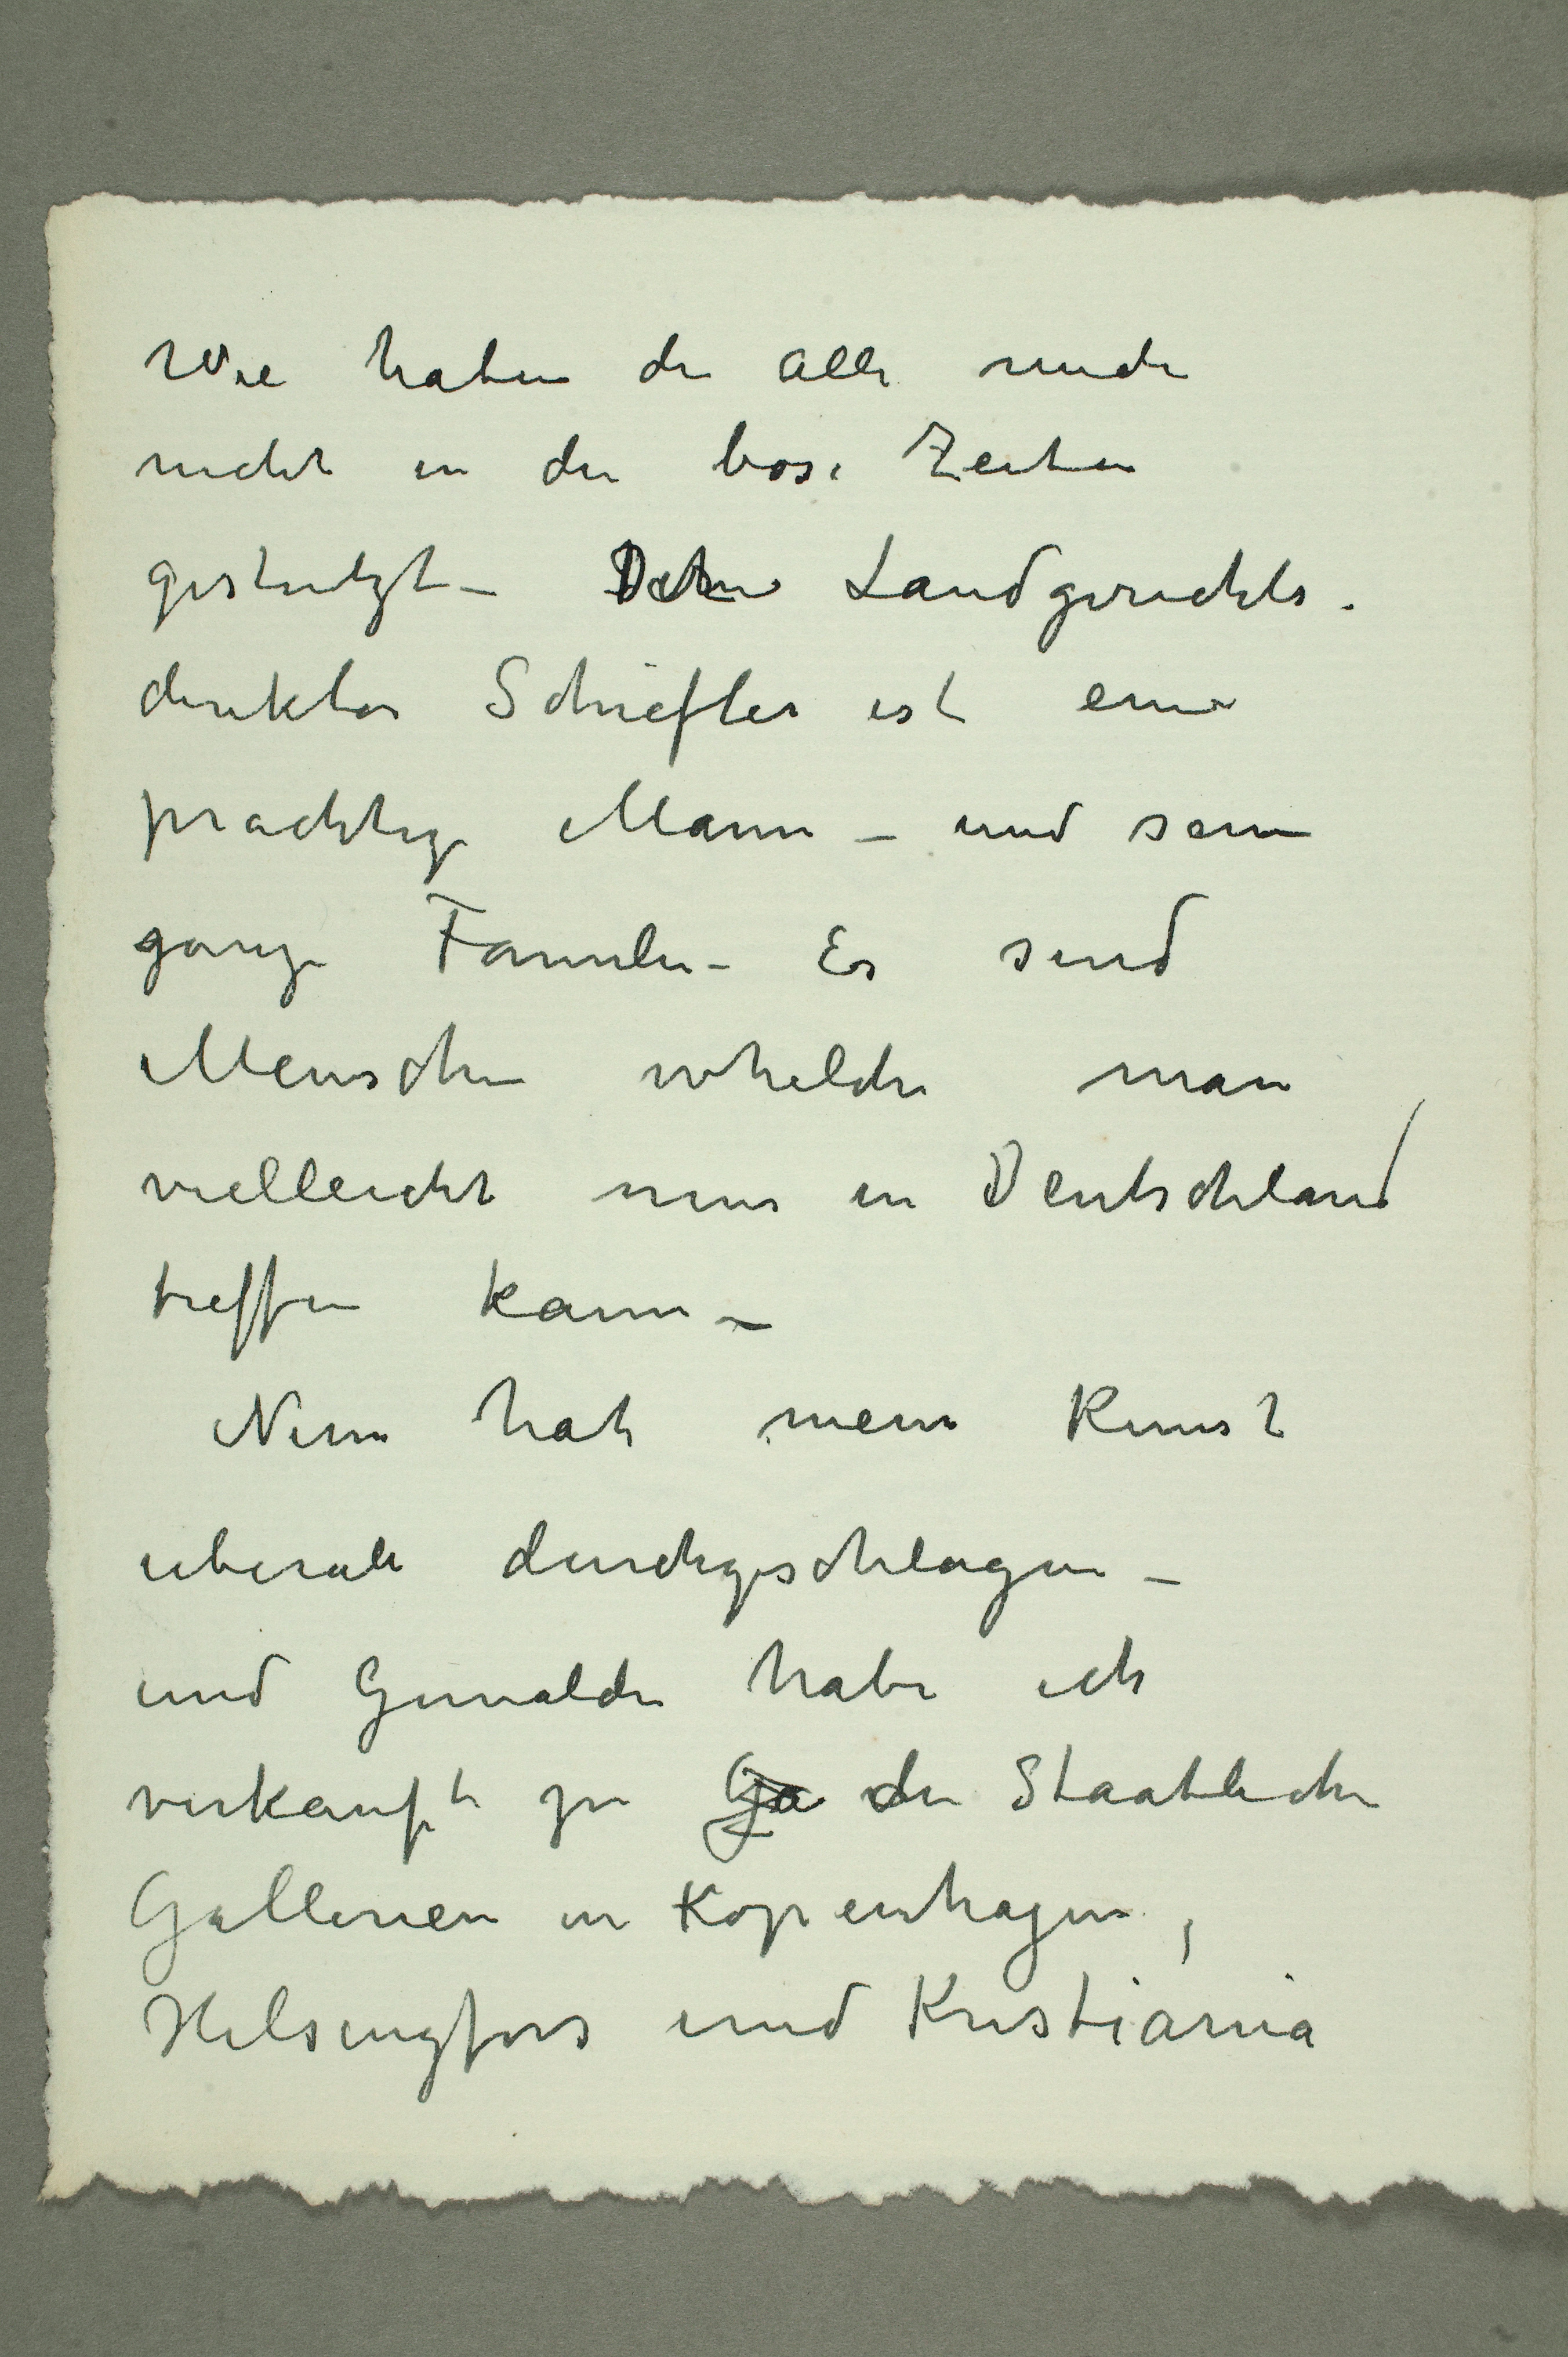 Wie haben die alle miche
nicht in die böse Zeiten
gestutzt – Der Landgerichts-
direktor Schiefler ist eine
prachtige Mann – und seine
ganze Familie – Es sind
Menschen whelche man
vielleicht nur in Deutschland
treffen kann –
Nun hat meine Kunst
uberall durchgeschlagen –
und Gemälde habe ich
verkauft zu Ga die Staatliche
Gallerien in Kopenhagen,
Helsingfors und Kristiania